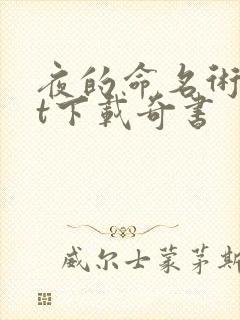 夜的命名術
t下載奇書
威尔士蒙茅斯